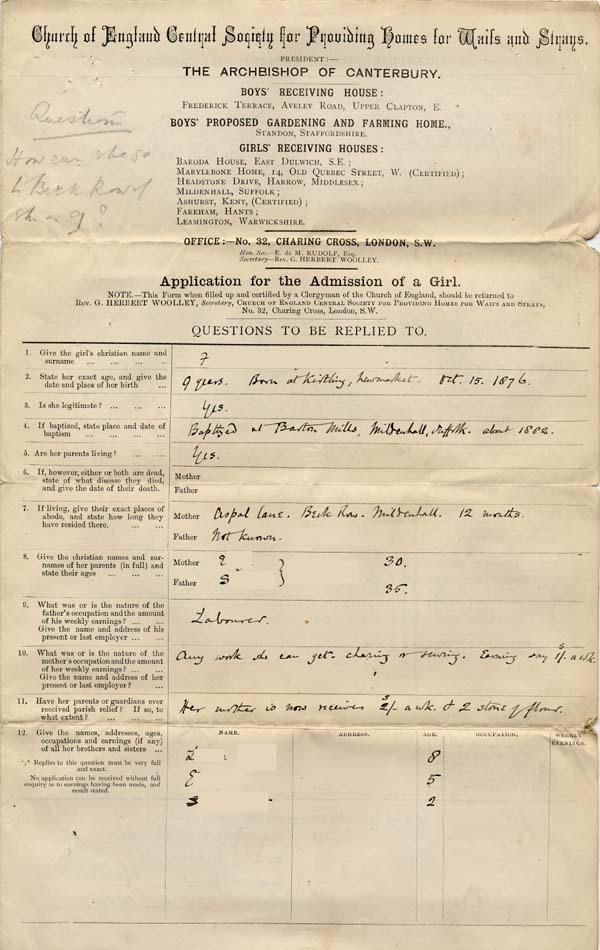 Church of England Central Society for Providing Homes for Waifs and Strays.
PRESIDENT:—
THE ARCHBISHOP OF CANTERBURY.
BOYS' RECEIVING HOUSE:
FREDERICK TERRACE, AVELEY ROAD, UPPER CLAPTON, E.
BOYS' PROPOSED GARDENING AND FARMING HOME.,
STANDON, STAFFORDSHIRE.
GIRLS' RECEIVING HOUSES:
BARODA HOUSE, EAST DULWICH, S.E.;
MARYLEBONE HOME, 14, OLD QUEBEC STREET, W. (CERTIFIED);
HEADSTONE DRIVE, HARROW, MIDDLESEX;
MILDENHALL, SUFFOLK;
ASHURST, KENT, (CERTIFIED);
FAREHAM, HANTS;
LEAMINGTON, WARWICKSHIRE.
Question
How can she go
to Beck Row if
she is 9?
OFFICE:—No. 32, CHARING CROSS, LONDON, S.W.
Hon. Sec.—E. de M. RUDOLF, Esq.
Secretary—Rev. G. HERBERT WOOLLEY.
Application for the Admission of a Girl.
NOTE.—This Form when filled up and certified by a Clergyman of the Church of England, should be returned to
Rev. G. HERBERT WOOLLEY, Secretary, CHURCH OF ENGLAND CENTRAL SOCIETY FOR PROVIDING HOMES FOR WAIFS AND STRAYS,
No. 32, Charing Cross, London, S.W.
QUESTIONS TO BE REPLIED TO.
1. Give the girl's christian name and
surname ... ... ... ...
F
2. State her exact age, and give the
date and place of her birth ...
9 years. Born at Kirtling, Newmarket. Oct. 15. 1876.
3. Is she legitimate? ... ... ...
Yes.
4. If baptized, state place and date of
baptism ... ... ... ...
Baptized at Barton Mills, Mildenhall, Suffolk. about 1882.
5. Are her parents living? ... ...
Yes.
6. If, however, either or both are dead,
state of what disease they died,
and give the date of their death.
Mother
Father
7. If living, give their exact places of
abode, and state how long they
have resided there. ... ...
Mother Aspal Lane. Beck Row. Mildenhall. 12 months.
Father Not known.
8. Give the christian names and sur-
names of her parents (in full) and
state their ages ... ... ...
Mother E 30.
Father S 35.
9. What was or is the nature of the
father's occupation and the amount
of his weekly earnings? ... ...
Give the name and address of his
present or last employer ... ...
Labourer.
10. What was or is the nature of the
mother's occupation and the amount
of her weekly earnings? ... ...
Give the name and address of her
present or last employer? ...
Any work she can get. charing or sewing. Earning say 1s/- a wk.
11. Have her parents or guardians ever
received parish relief? If so, to
what extent? ... ... ...
Her mother is now receives 2s/- a wk. & 2 stone of flour.
12. Give the names, addresses, ages,
occupations and earnings (if any)
of all her brothers and sisters ...
*** Replies to this question must be very full
and exact.
No application can be received without full
enquiry as to earnings having been made, and
result stated.
NAME. ADDRESS. AGE. OCCUPATION. WEEKLY EARNINGS.
L 8
E 5
S 2